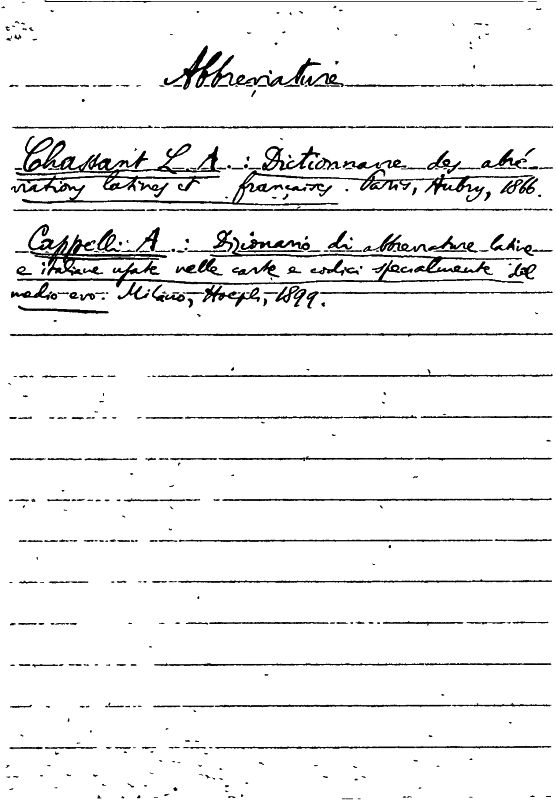 Abbreviature
Chassant L A. : Dictionnaire des abré-
viations latines et françaises. Paris, Aubry, 1866.
Cappelli A. : Dizionario di abbreviature latine
e italiane usate nelle carte e codici specialmente del
medio-evo. Milano, Hoepli, 1899.